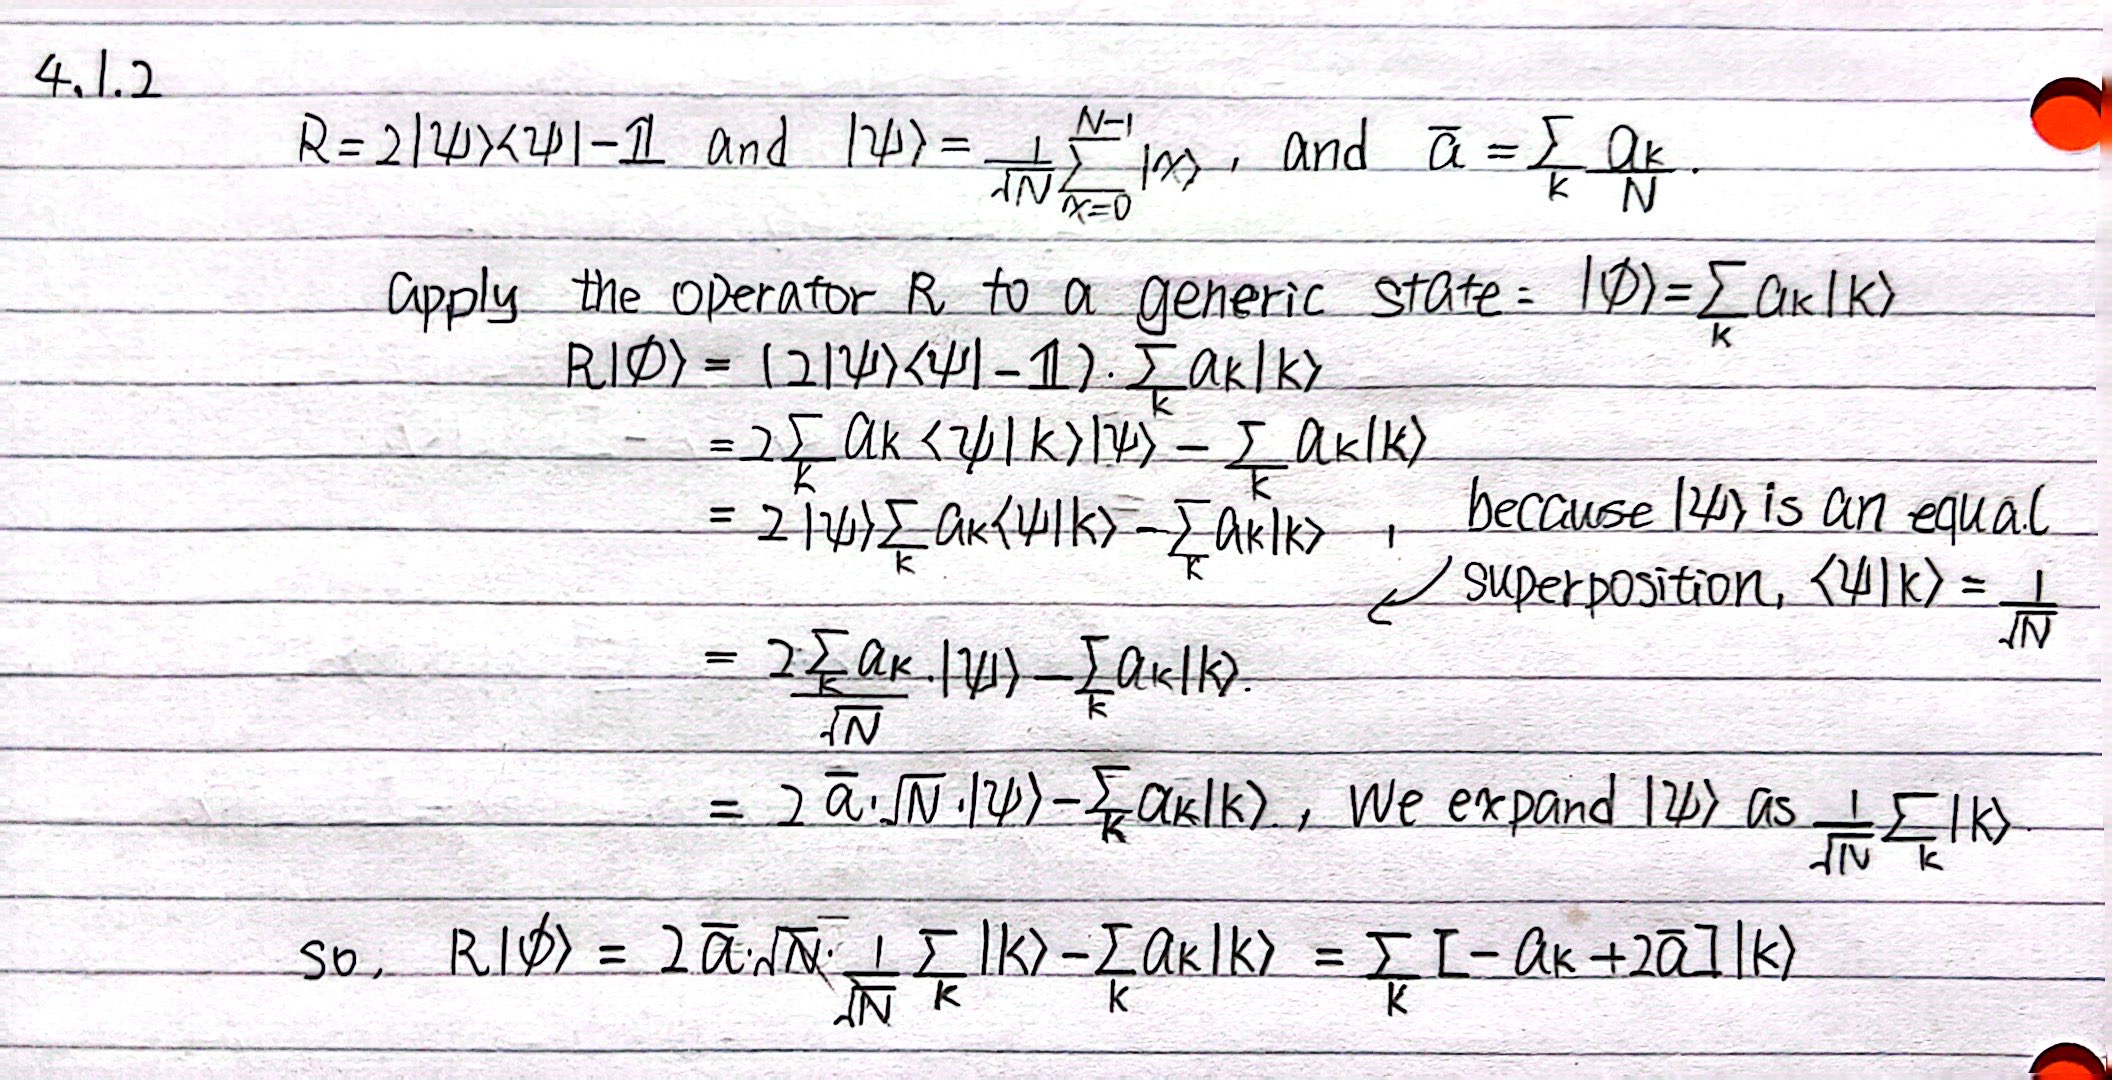 4.1.2
R = 2|ψ⟩⟨ψ| − 𝟙 and |ψ⟩ = 1/√N ∑_{x=0}^{N−1} |x⟩, and ā = ∑_k a_k/N.
apply the operator R to a generic state: |ϕ⟩ = ∑_k a_k|k⟩
R|ϕ⟩ = (2|ψ⟩⟨ψ| − 𝟙) · ∑_k a_k|k⟩
= 2∑_k a_k ⟨ψ|k⟩|ψ⟩ − ∑_k a_k|k⟩
= 2|ψ⟩∑_k a_k⟨ψ|k⟩ − ∑_k a_k|k⟩ , because |ψ⟩ is an equal
superposition, ⟨ψ|k⟩ = 1/√N
= 2∑_k a_k/√N · |ψ⟩ − ∑_k a_k|k⟩.
= 2ā·√N·|ψ⟩ − ∑_k a_k|k⟩., We expand |ψ⟩ as 1/√N ∑_k |k⟩.
so, R|ϕ⟩ = 2ā·√N· 1/√N ∑_k |k⟩ − ∑_k a_k|k⟩ = ∑_k [− a_k + 2ā]|k⟩